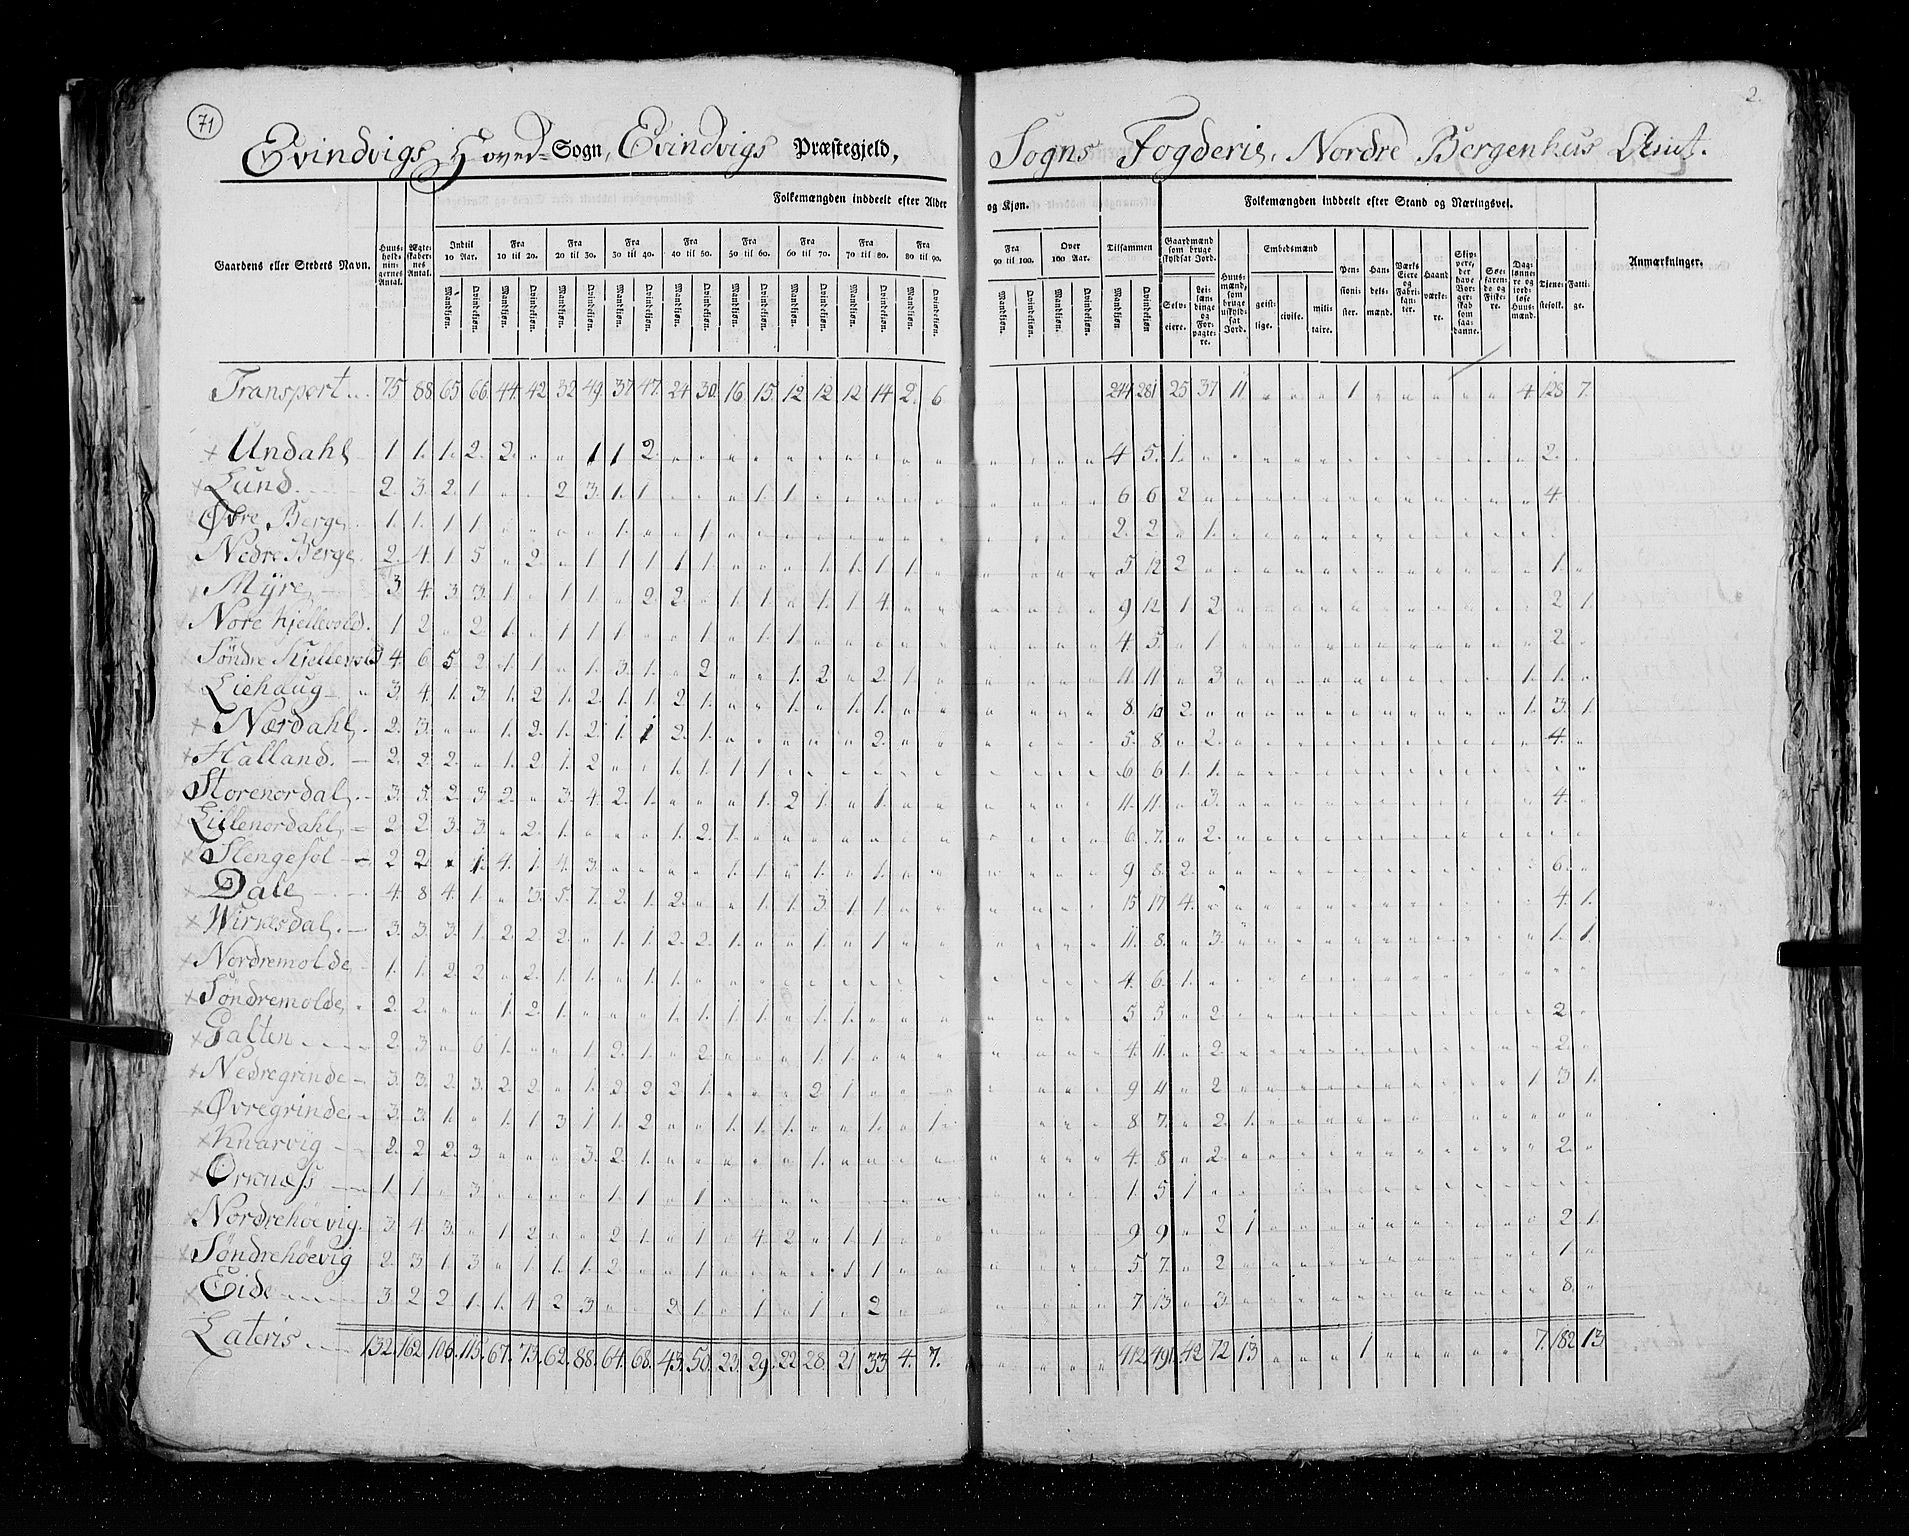 71
2.
Evindvigs Hoved-Sogn, Evindvigs Præstegjeld, Sogns Fogderie, Nordre Bergenhus Amt.
Folkemængden inddeelt efter Alder og Kjøn. Folkemængden inddeelt efter Stand og Næringsvei.
Gaardens eller Stedets Navn. Huusholdningernes Antal. Ægteskabernes Antal. Indtil 10 Aar. Fra 10 til 20. Fra 20 til 30. Fra 30 til 40. Fra 40 til 50. Fra 50 til 60. Fra 60 til 70. Fra 70 til 80. Fra 80 til 90. Fra 90 til 100. Over 100 Aar. Tilsammen Gaardmænd som bruge skyldsat Jord. Huusmænd, som bruge uskyldsat Jord. Embedsmænd Pensionister. Handelsmænd. Værks Eiere og Fabrikanter. Haandværkere. Skippere, der have Borgerskab som saadanne. Søefarende og Fiskere. Daglønnere og jordløse Huusmænd. Tjenestefolk. Fattige. Anmærkninger.
Mandkjøn. Qvindekjøn. Selveiere. Leilændinge og Forpagtere. geistlige. civile. militaire.
Transport 75 88 65 66 44 42 32 49 37 47 24 30 16 15 12 12 12 14 2 6 244 281 25 37 11 1 4 128 7
Undahl 1 1 1 2 2 1 1 2 4 5 1 2
Lund 2 3 2 1 2 3 1 1 1 1 6 6 2 4
Øvre Berge 1 1 1 1 1 1 2 2 1
Nedre Berge 2 4 1 5 2 1 1 1 1 1 1 1 1 1 5 12 2 1
Myre 3 4 3 3 1 1 1 2 2 1 1 1 1 4 9 12 1 2 2 1
Nore Kjellevold 1 2 2 1 1 1 1 1 1 1 4 5 1 2
Søndre Kjellevold 4 6 5 2 1 1 1 3 1 2 1 2 2 1 11 11 3 1 1
Liehaug 3 4 1 3 1 2 1 2 1 1 2 1 1 1 1 8 10 2 1 3 1
Nærdahl 2 3 1 2 1 2 1 1 2 1 2 5 8 2 4
Halland 2 2 2 1 2 1 2 1 1 1 1 6 6 1 1
Storenordal 3 5 2 3 2 3 4 2 1 1 2 1 1 11 11 3 4
Lillenordahl 2 2 3 3 2 1 1 2 1 6 7 2
Slengesol 2 2 1 4 1 4 3 1 1 1 1 9 8 2 6
Dale 4 8 4 1 3 5 7 2 1 2 1 1 3 1 1 15 17 4 4 1
Wirnesdal 3 3 3 1 2 2 2 1 1 2 2 1 1 1 11 8 3 1 1
Nordremolde 1 1 2 2 2 1 1 1 1 4 6 1
Søndremolde 2 2 1 2 1 1 1 1 1 1 1 5 5 2 2
Galten 2 3 6 1 1 2 1 2 1 1 4 11 2 2
Nedregrinde 3 3 2 3 2 2 1 2 2 2 1 2 1 9 4 2 1 3 1
Øvregrinde 3 3 1 1 1 3 1 1 2 1 1 1 1 1 8 7 2 1
Knarvig 2 2 2 3 3 2 1 1 4 8 2 2
Ornæss 1 1 3 1 1 1 1 5 1
Nordrehøevig 3 4 3 1 2 2 1 1 4 2 1 1 9 9 2 1 2 1
Søndrehøevig 2 3 1 3 1 1 1 2 1 1 1 5 7 2 1
Eide 3 2 2 1 1 4 2 3 2 1 1 1 2 7 13 3 8
Lateris 132 162 106 115 67 73 62 88 64 68 43 50 23 29 22 28 21 33 4 7 412 491 42 72 13 1 7 182 13